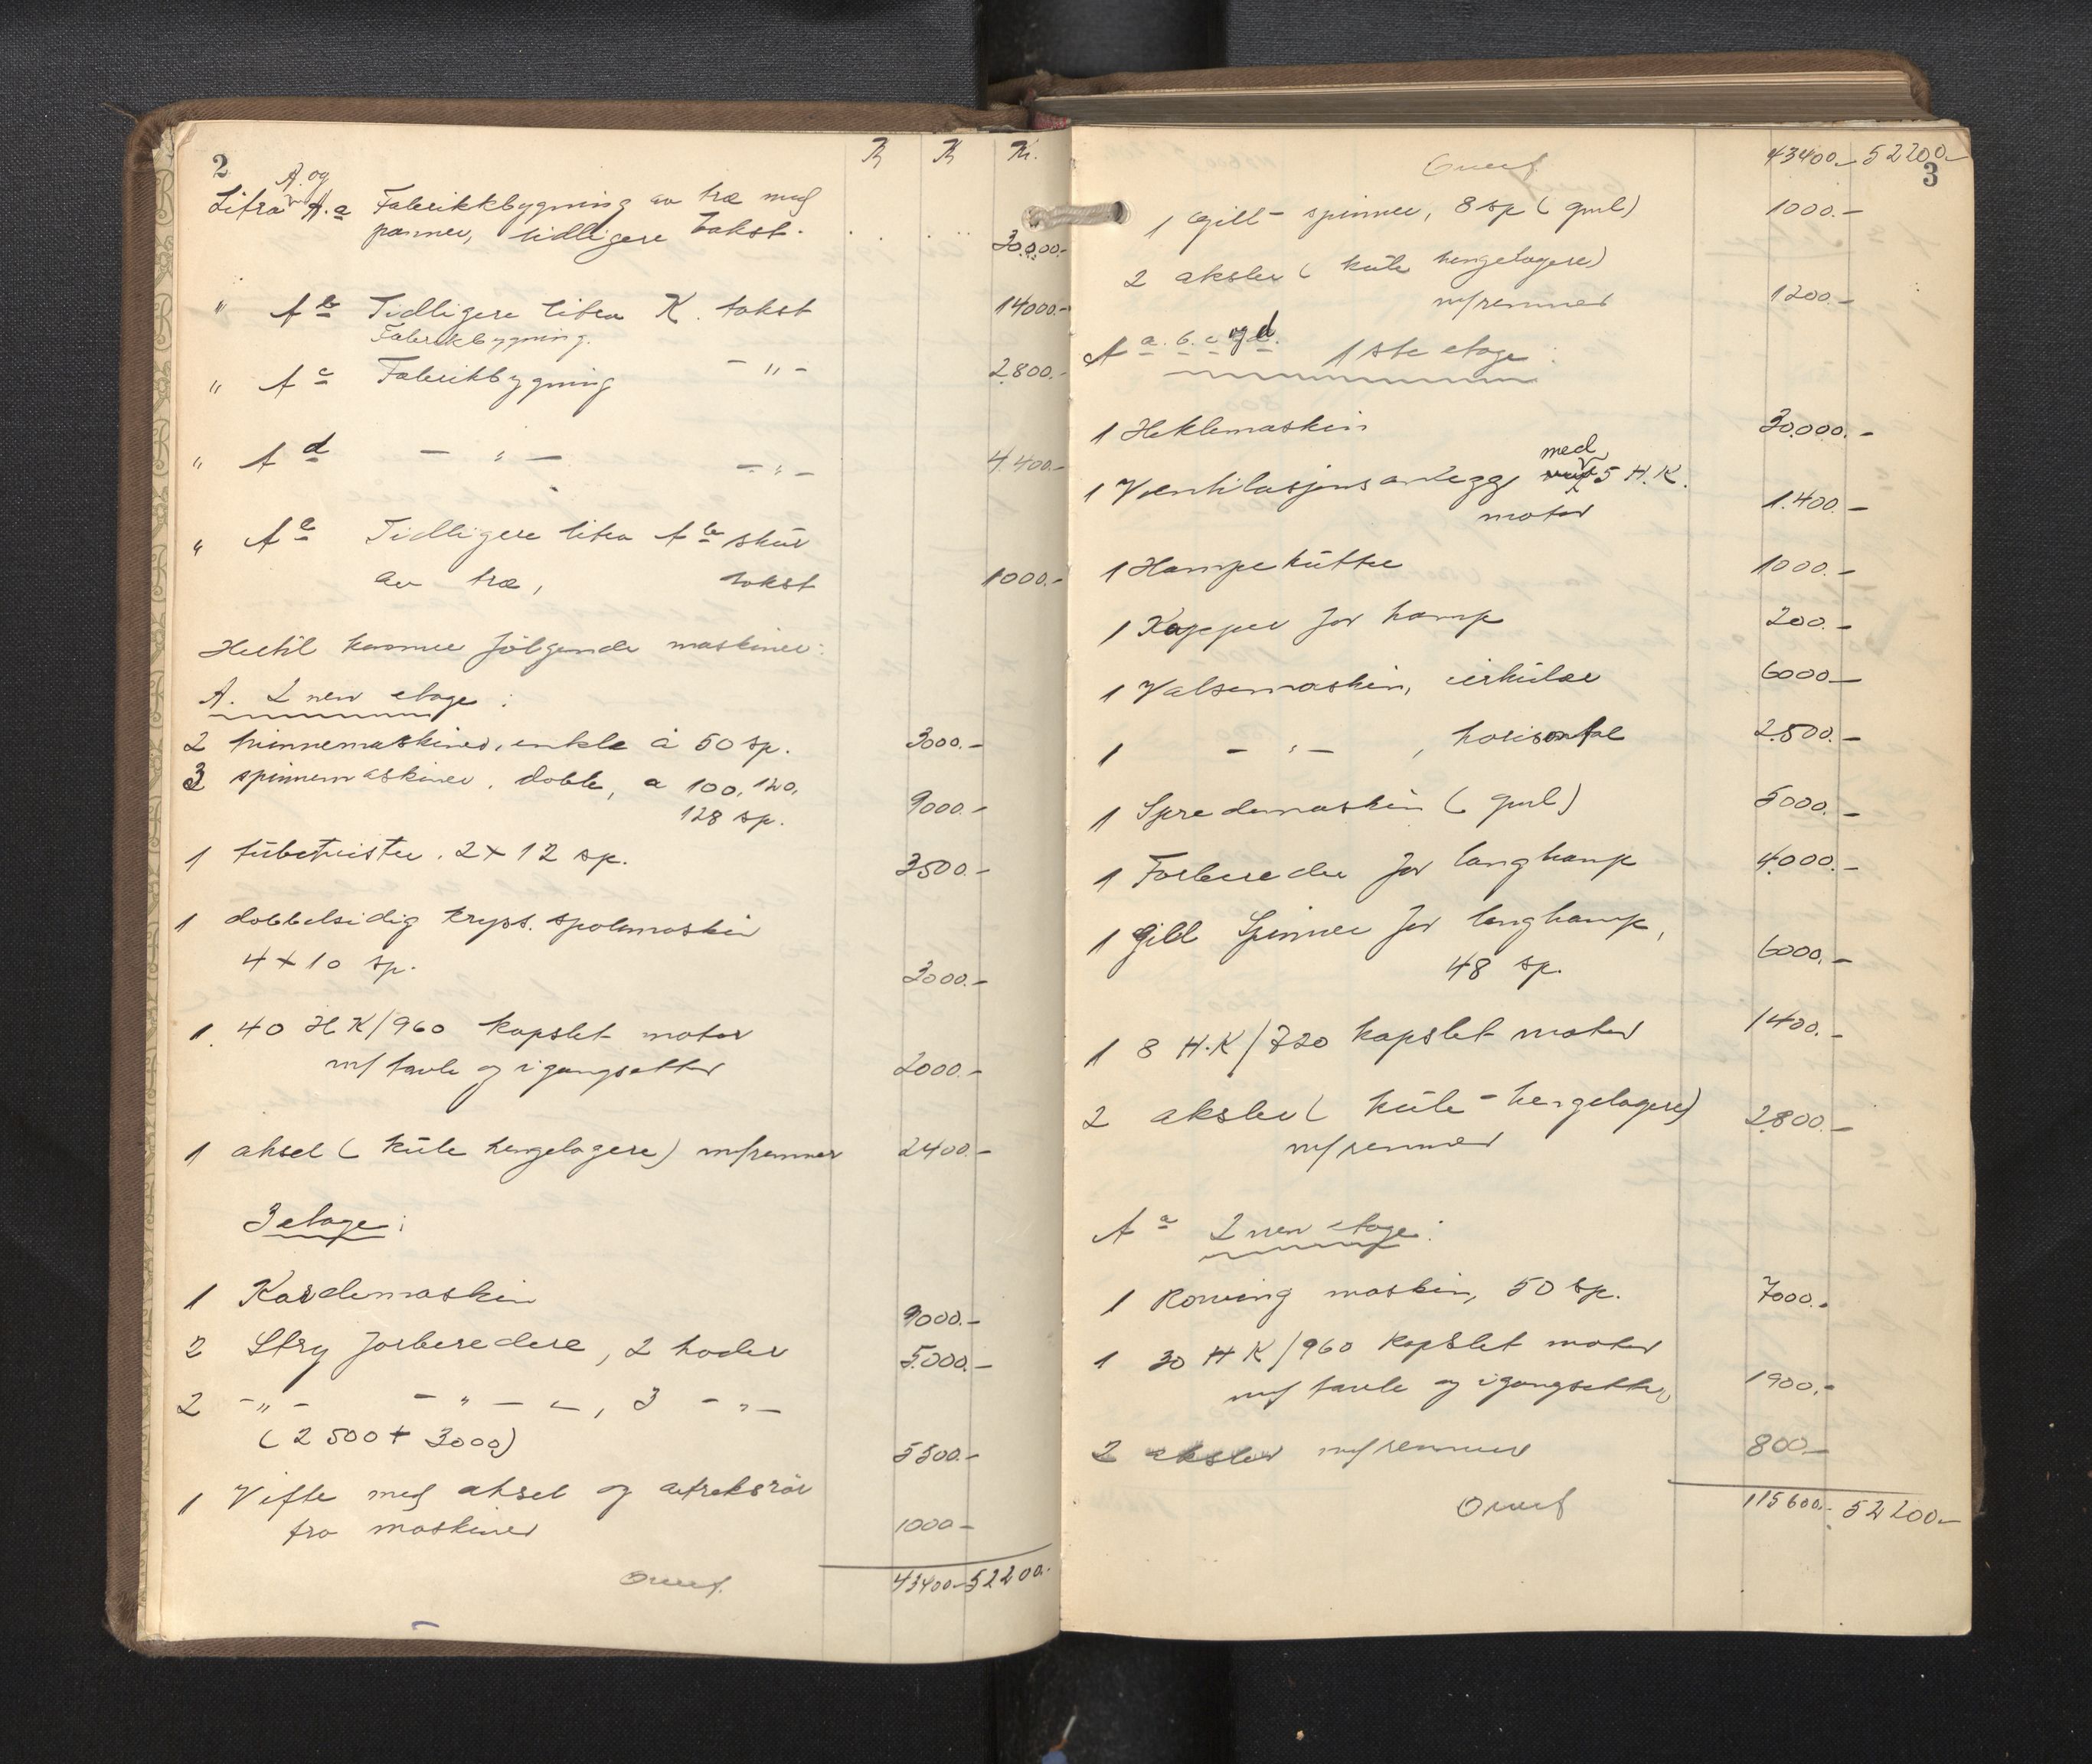 2
Kr Kr Kr.
A. og
Litra A.a Fabrikkbygning av træ med
panner, tidligere takst. 30.000.-
" A b Tidligere litra K. takst 14000.-
Fabrikbygning.
" A c Fabrikbygning - " - 2.800.-
" A d - " - - " - 4.400.-
" A e Tidligere litra A b skur
av træ, takst 1000.-
Hertil kommer følgende maskiner:
A. 2 nen etage:
2 tvinnemaskiner, enkle à 50 sp. 3000.-
3 spinnemaskiner, doble, a 100, 120,
128 sp. 9000.-
1 tübetvister. 2+12 sp. 3500.-
1 dobbelsidig kryss. spolemaskin
4+10 sp. 3000.-
1 40 HK/960 kapslet motor
m/ tavle og igangsetter 2000.-
1 aksel ( küle hengelagere) m/remmer 2400.-
3 etage:
1 Kardemaskin 9000.-
2 Stry forberedere, 2 hoder 5.000.-
2 - " - - " - , 3 - " -
(2500 + 3000) 5500.-
1 Vifte med aksel og avtreksrör
fra maskiner 1000.-
Overf. 43400.- 52200.-
3
Overf. 43400.- 52200.-
1 Gill - spinner, 8 sp ( gml) 1000.-
2 aksler ( küle hengelagere)
m/remmer 1200.-
A a. b. c og d. 1 ste etage:
1 Heklemaskin 30.000.-
med
1 Ventilasjonsanlegg 5 H.K.
motor 1.400.-
1 Hampekutter 1000.-
1 Kapper for hamp 200.-
1 Valsemaskin, cirkülær 6000.-
1 - " - , horisontal 2.500.-
1 Spredemaskin ( gml) 5000.-
1 Forbereder for langhamp 4.000.-
1 Gill Spinner for langhamp,
48 sp. 6000.-
1 8 H.K/720 kapslet motor 1400.-
2 aksler ( küle - hengelagere)
m/remmer 2.800.-
A a 2 nen etage:
1 Rowing maskin, 50 sp. 7000.-
1 30 HK/960 kapslet motor
m/ tavle og igangsetter 1900.-
2 aksler m/remmer 800.-
Overf 115600.- 52200.-